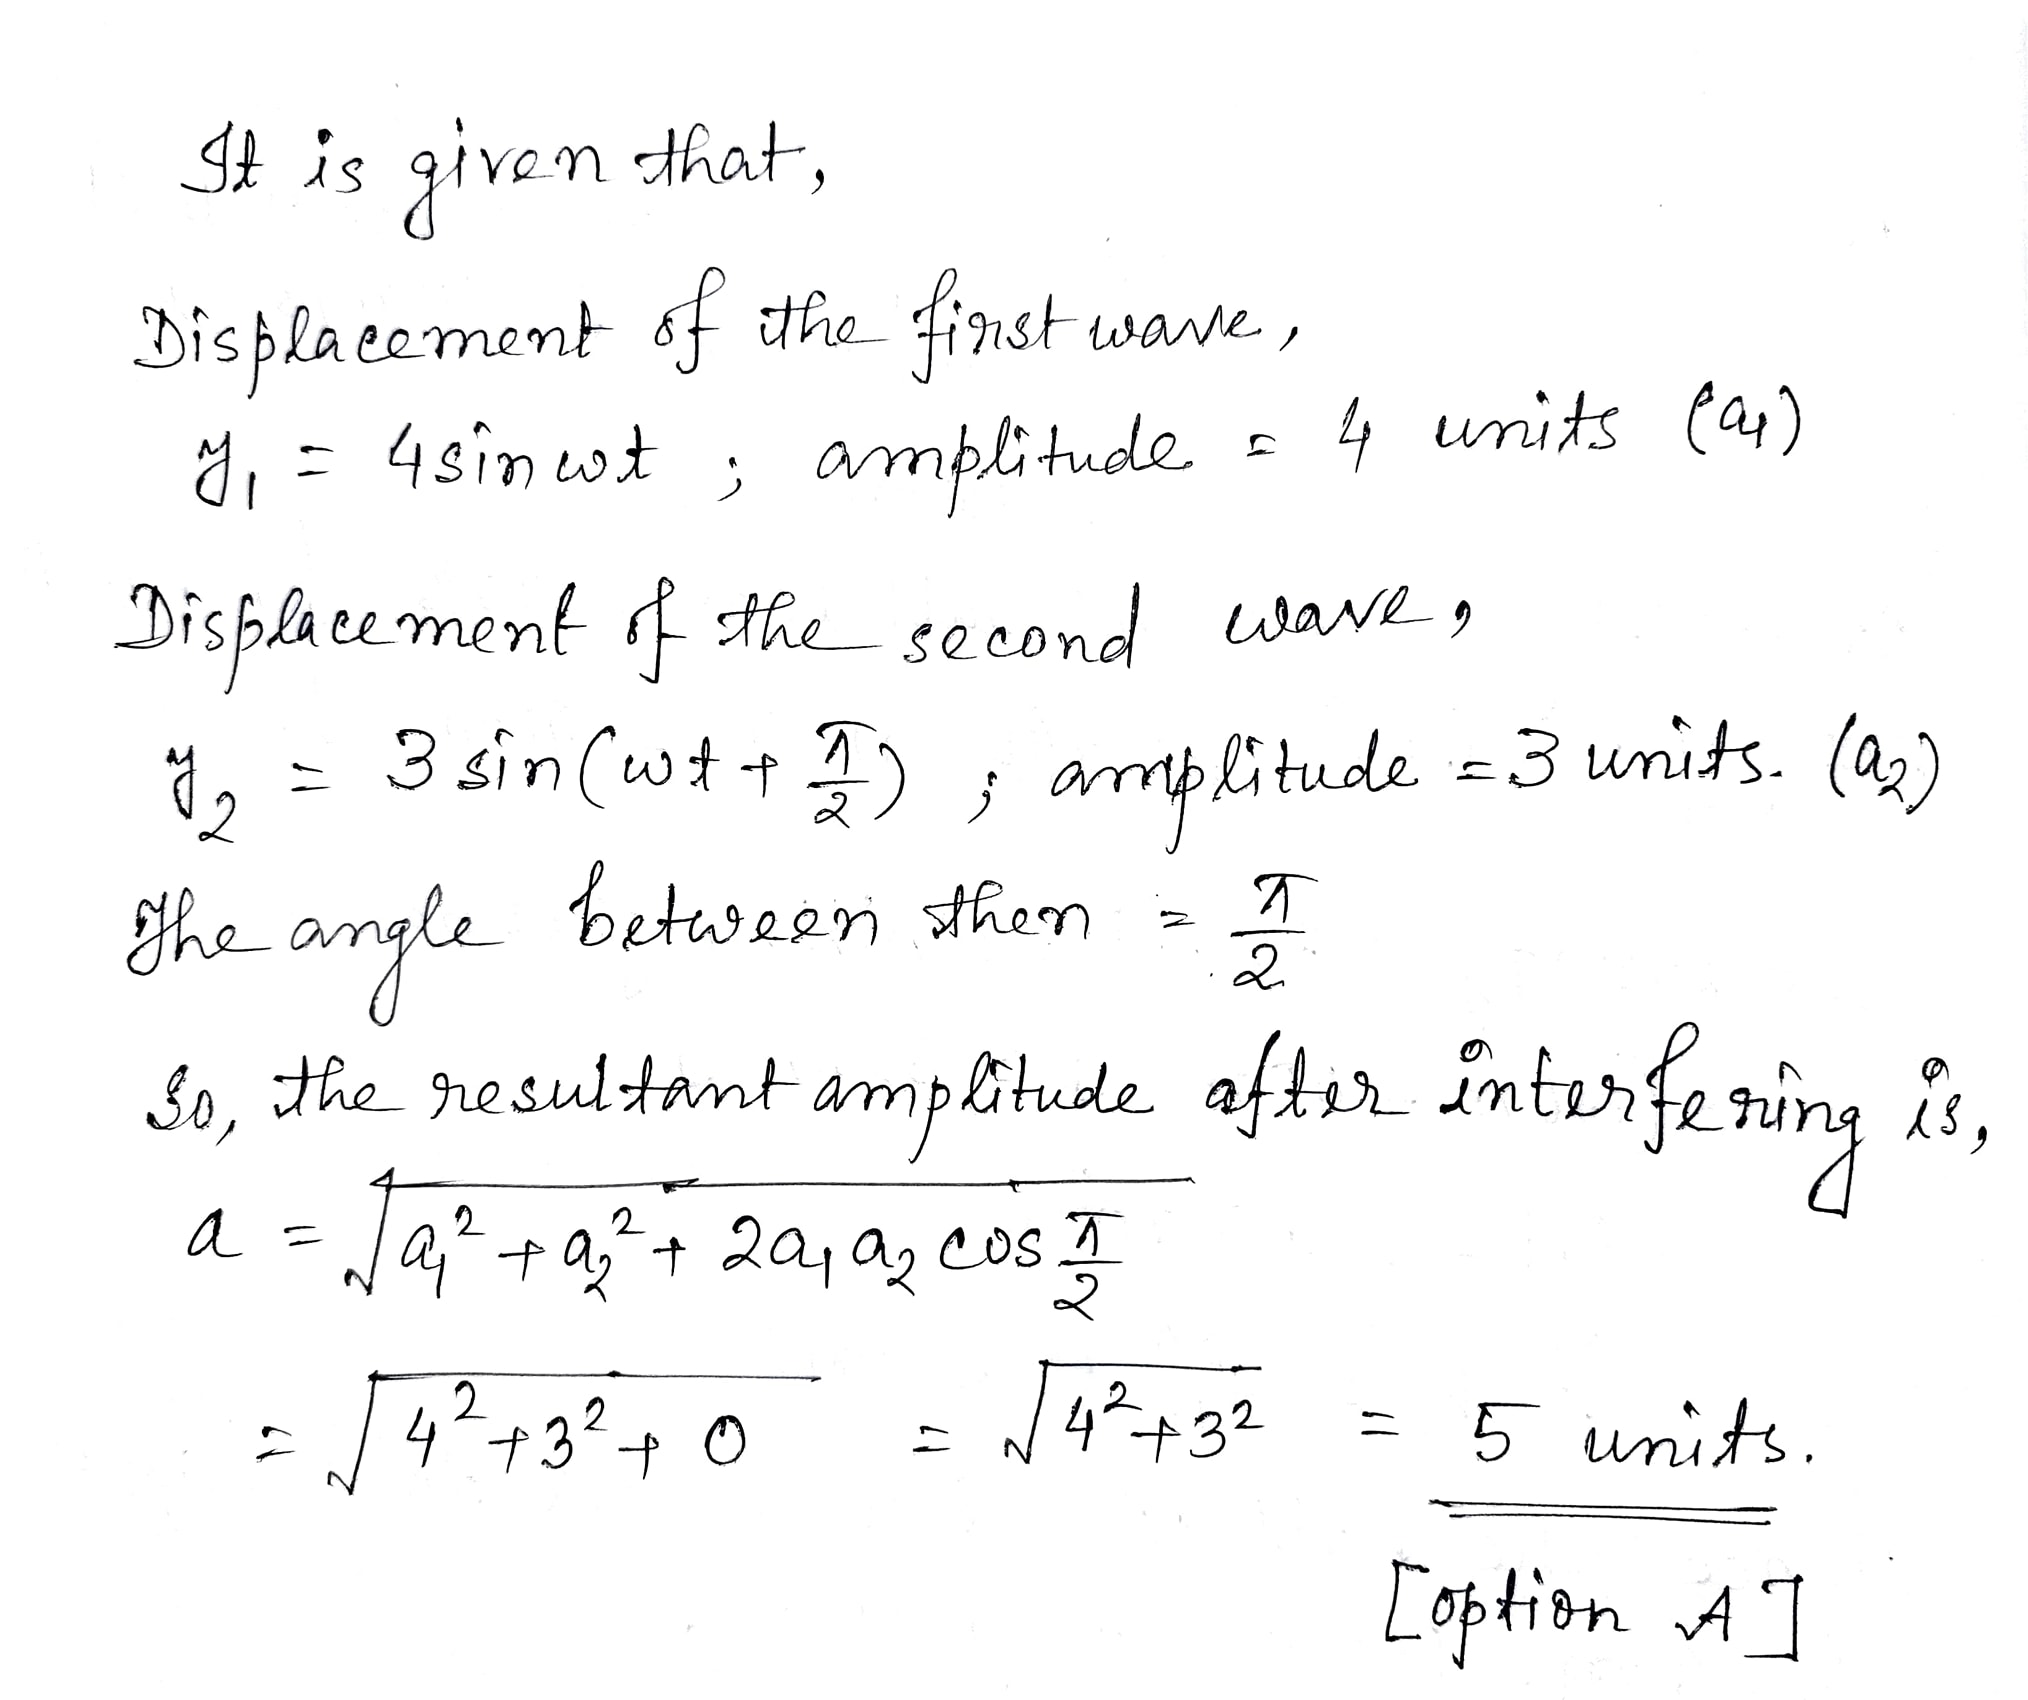 It is given that,
Displacement of the first wave,
y₁ = 4 sin ωt ; amplitude = 4 units (a₁)
Displacement of the second wave,
y₂ = 3 sin(ωt + π/2) ; amplitude = 3 units. (a₂)
The angle between then = π/2
So, the resultant amplitude after interfering is,
a = √(a₁² + a₂² + 2a₁a₂ cos π/2)
= √(4² + 3² + 0) = √(4² + 3²) = 5 units.
[option A]